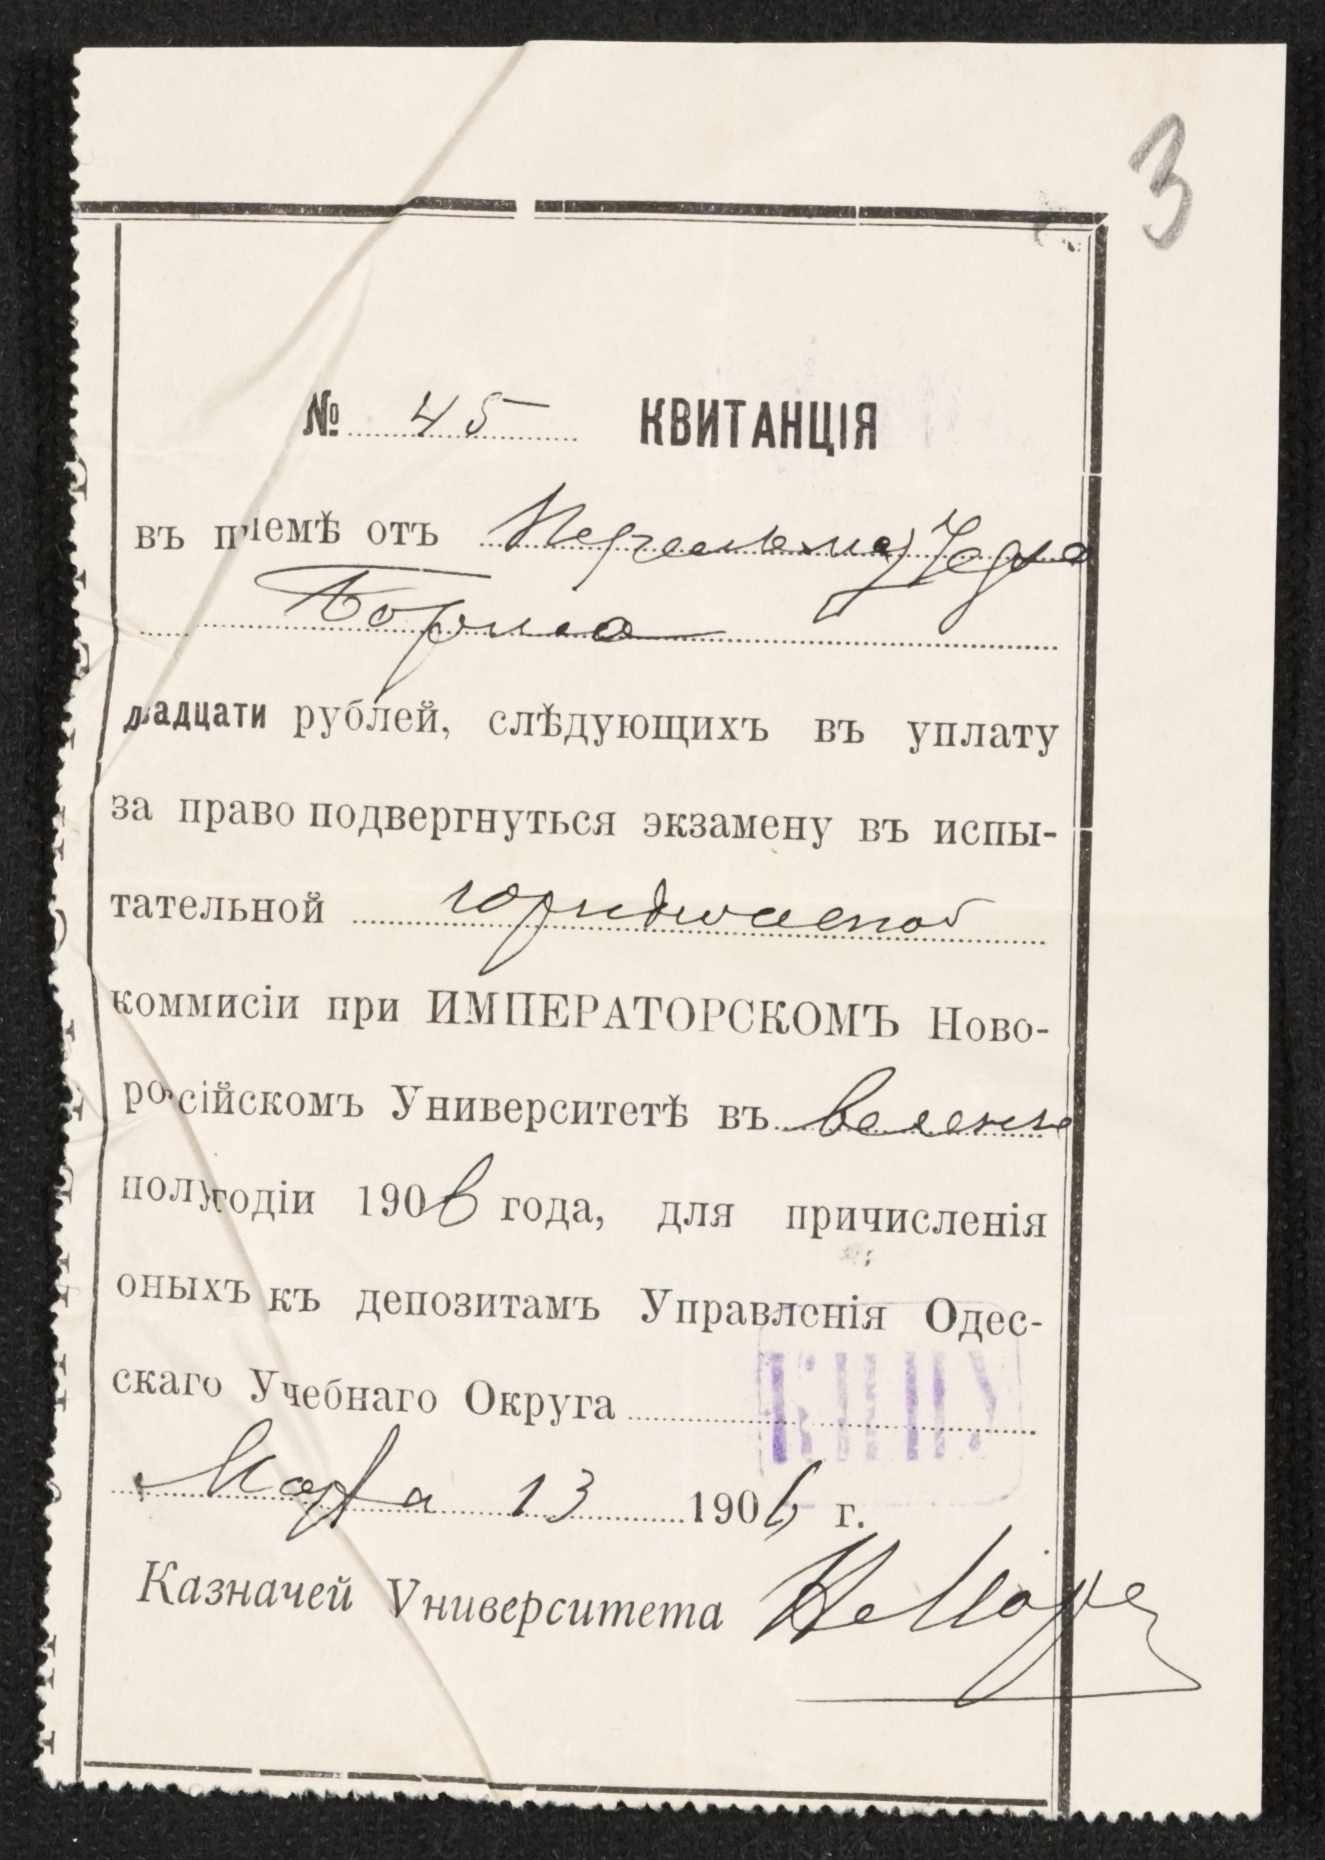 3
№ 45 КВИТАНЦІЯ
въ пріемѣ отъ
Бориса
двадцати рублей, слѣдующихъ въ уплату
за право подвергнуться экзамену въ испы-
тательной юридической
коммисіи при ИМПЕРАТОРСКОМЪ Ново-
россійскомъ Университетѣ въ весенне
полугодіи 1906 года, для причисленія
оныхъ къ депозитамъ Управленія Одес-
скаго Учебнаго Округа
Марта 13 1906 г.
Казначей Университета